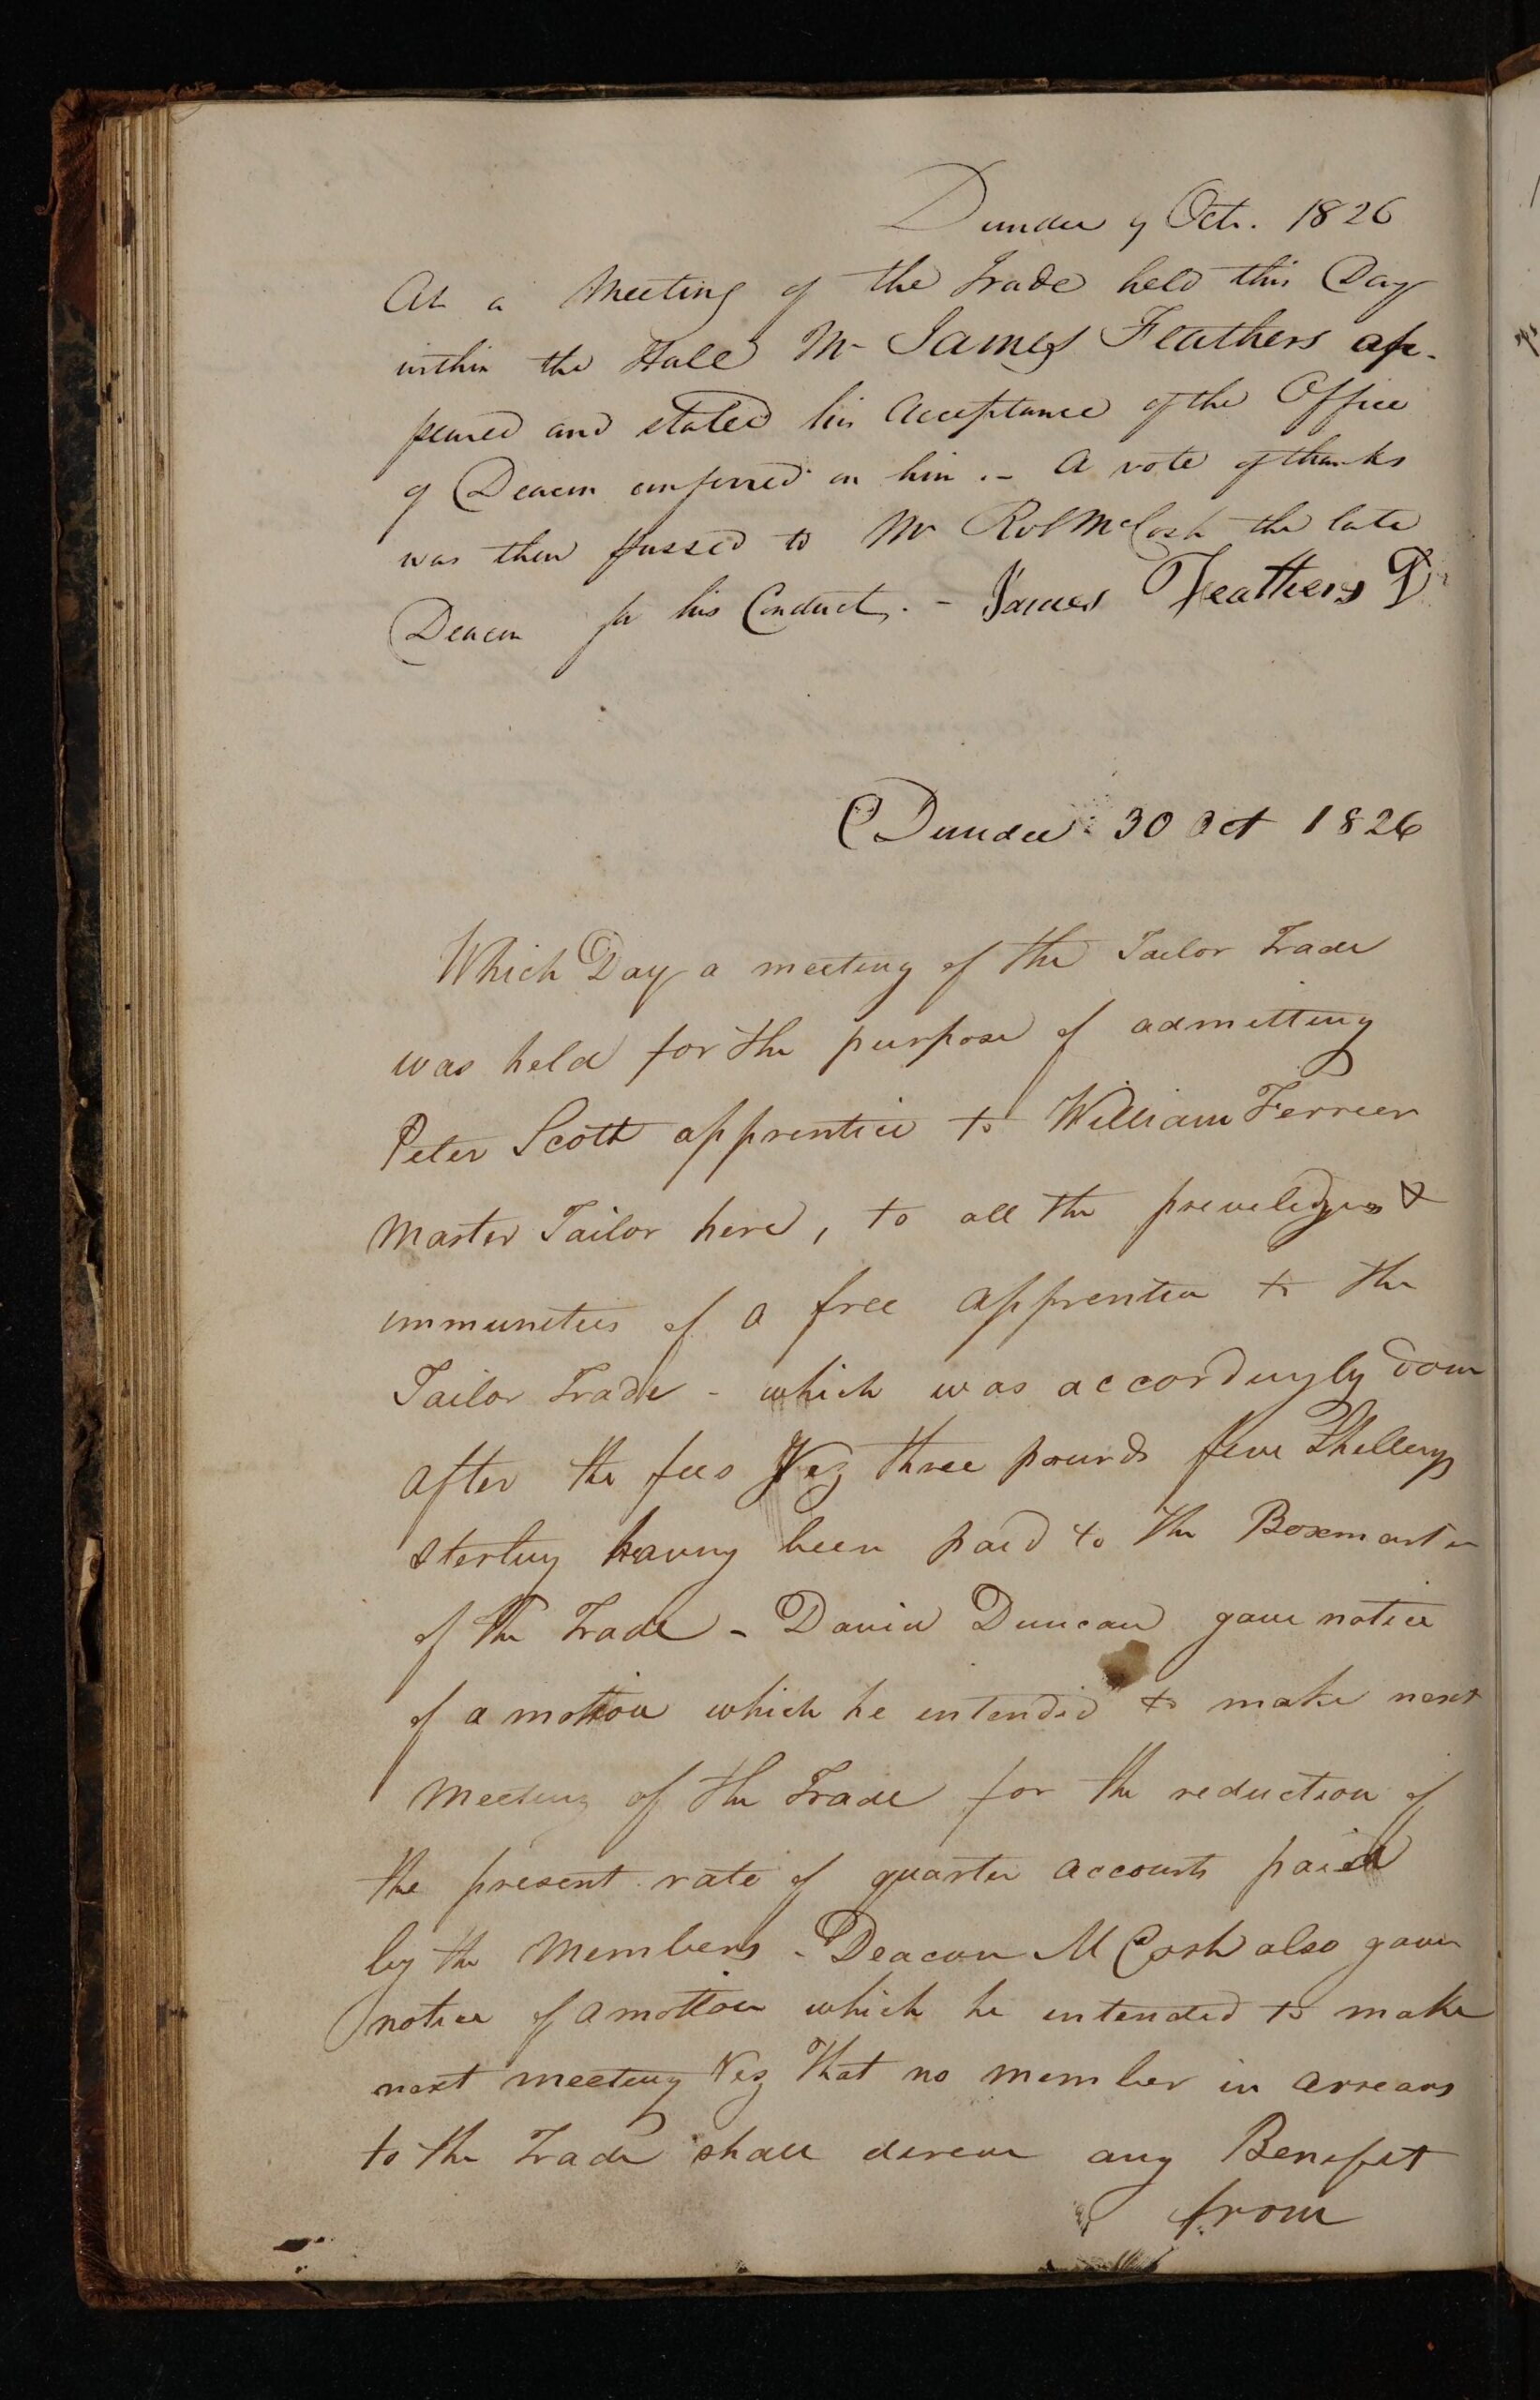 Dundee 9 Octr. 1826
At a Meeting of the Trade held this Day
within the Hall Mr James Feathers ap-
peared and stated his Acceptance of the Office
of Deacon conferred on him .- A vote of thanks
was then passed to Mr Robt McCosh the late
Deacon for his Conduct. - James Feathers D
Dundee 30 Oct 1826
Which Day a meeting of the Tailor Trade
was held for the purpose of admitting
Peter Scott apprentice to William Ferrier
Master Tailor here, to all the priveledges &
immunities of a free apprentice to the
Tailor Trade - which was accordingly done
after the fees Viz three pounds five Shillings
Sterling having been paid to the Boxmaster
of the Trade - David Duncan gave notice
of a motion which he intended to make next
Meeting of the Trade for the reduction of
the present rate of quarter accounts paid
by the Members - Deacon McCosh also gave
notice of a motion which he intended to make
next meeting Viz That no member in arrears
to the Trade shall derive any Benefit
from